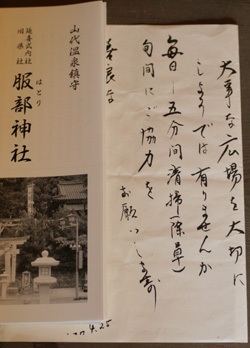 大事な広場を大切に
しようでは有りませんか
毎日一五分間清掃(除草)
旬間にご協力を
お願いします
山代温泉鎮守
延喜式内社
旧県社
はとり
服部神社
4.25